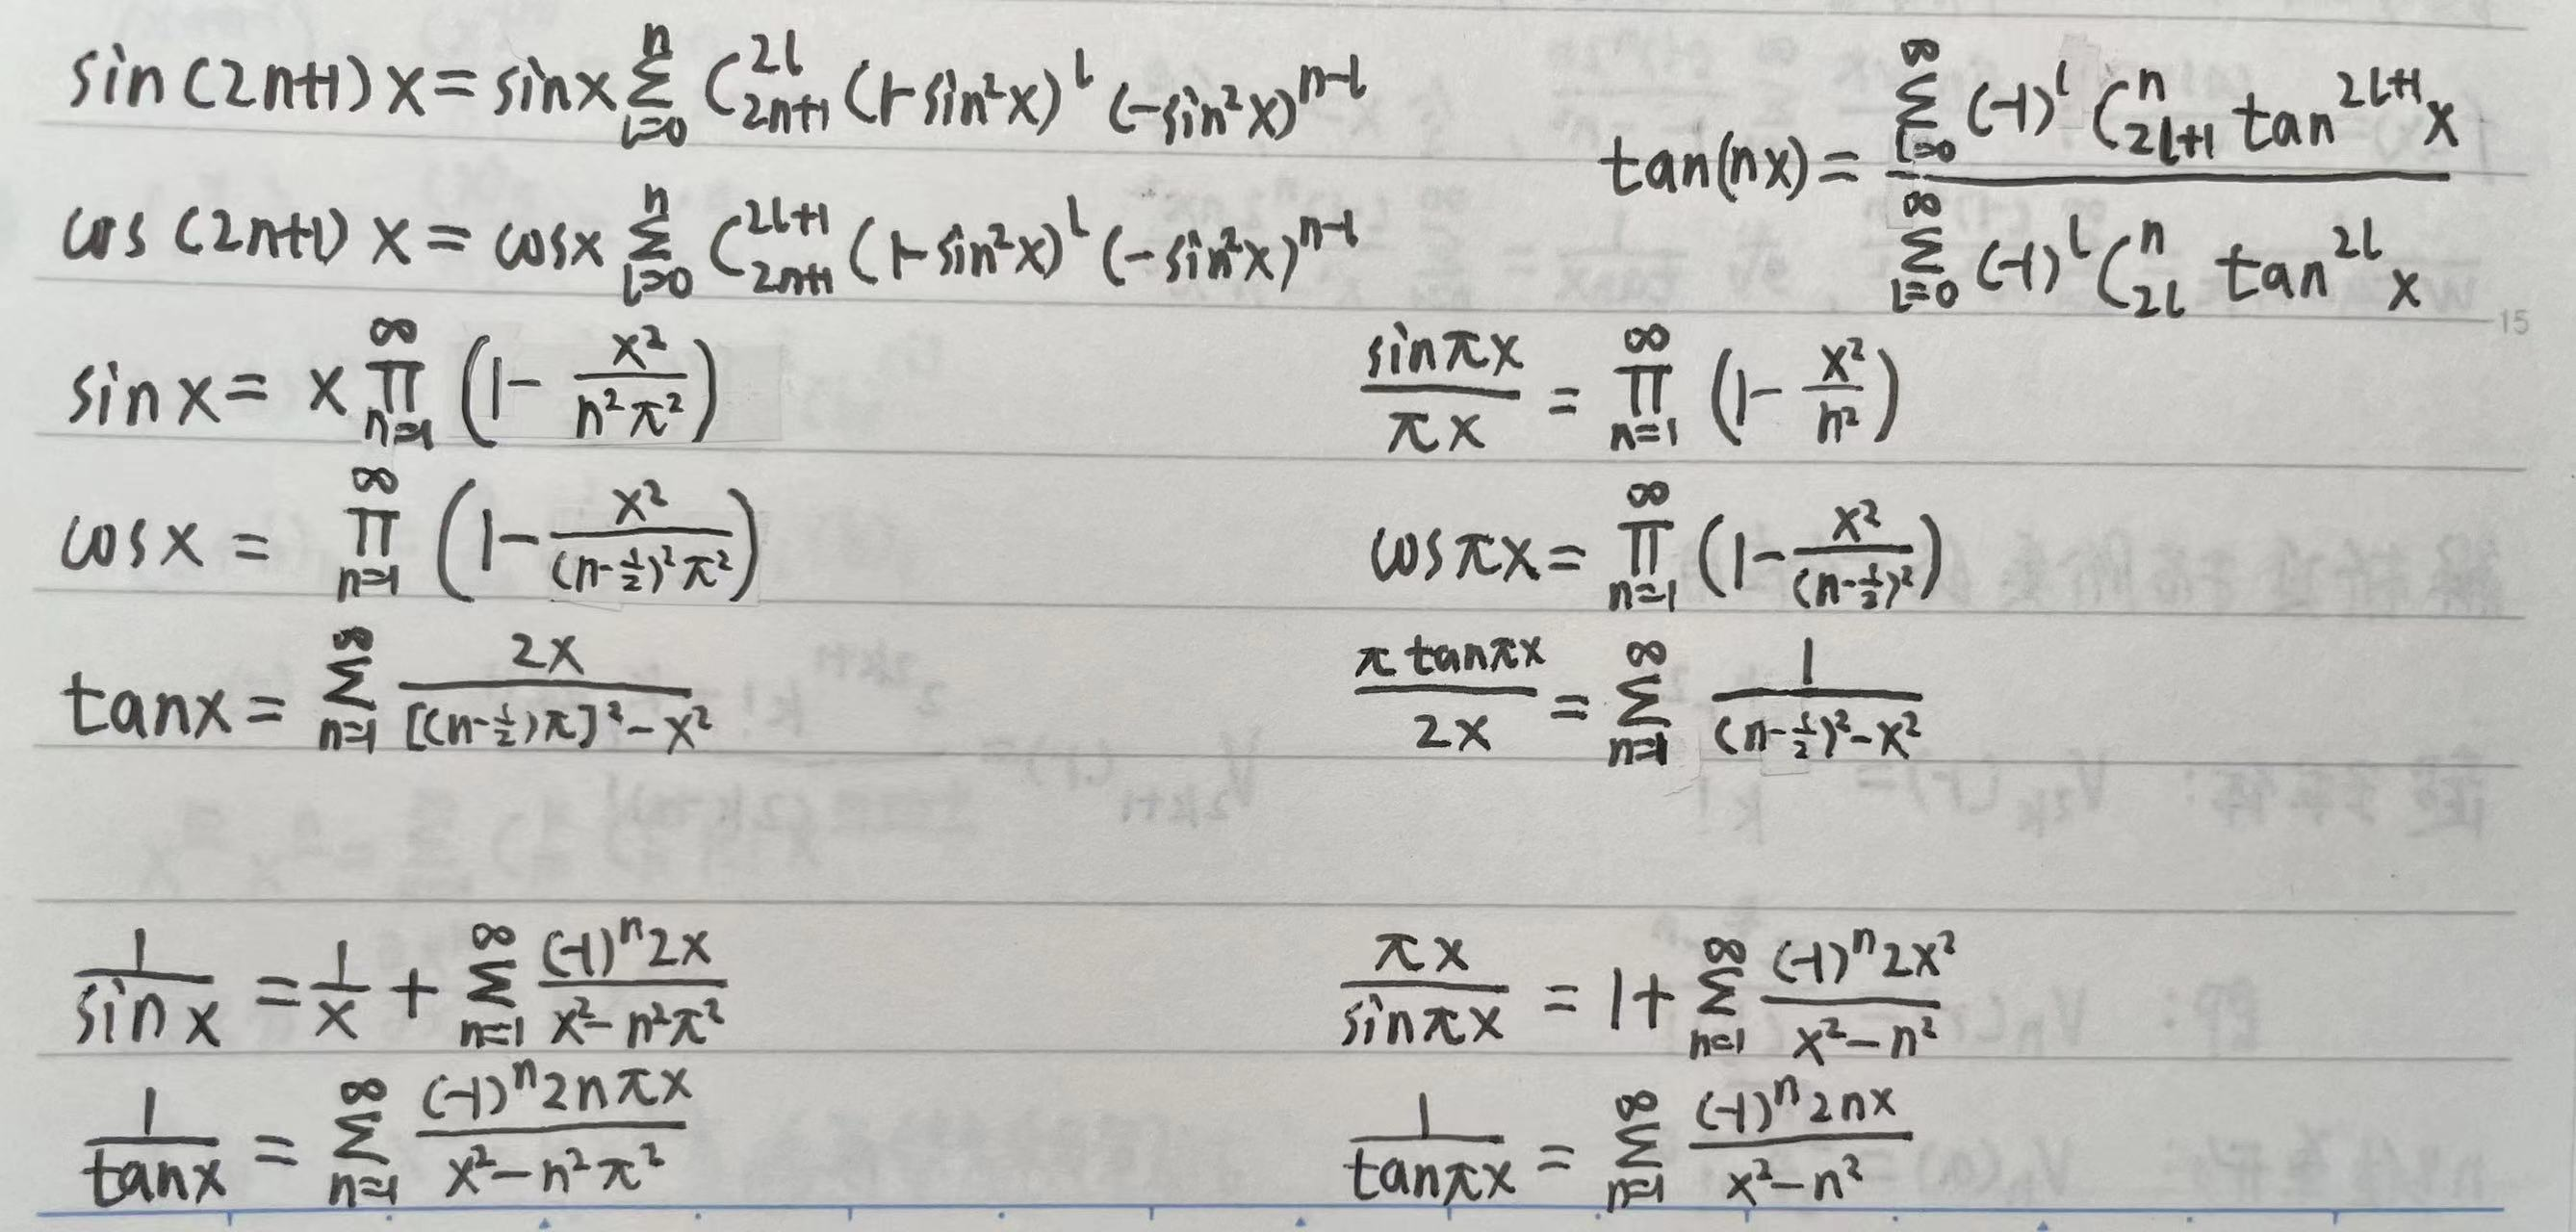 sin(2n+1)x = sinx ∑_{l=0}^{n} C_{2n+1}^{2l} (1-sin²x)^l (-sin²x)^{n-l}
tan(nx) = \frac{∑_{l=0}^{∞} (-1)^l C_{2l+1}^{n} tan^{2l+1}x}{∑_{l=0}^{∞} (-1)^l C_{2l}^{n} tan^{2l}x}
cos(2n+1)x = cosx ∑_{l=0}^{n} C_{2n+1}^{2l+1} (1-sin²x)^l (-sin²x)^{n-l}
15
sinx = x ∏_{n=1}^{∞} (1 - \frac{x²}{n²π²})
\frac{sinπx}{πx} = ∏_{n=1}^{∞} (1 - \frac{x²}{n²})
cosx = ∏_{n=1}^{∞} (1 - \frac{x²}{(n-\frac{1}{2})²π²})
cosπx = ∏_{n=1}^{∞} (1 - \frac{x²}{(n-\frac{1}{2})²})
tanx = ∑_{n=1}^{∞} \frac{2x}{[(n-\frac{1}{2})π]² - x²}
\frac{π tanπx}{2x} = ∑_{n=1}^{∞} \frac{1}{(n-\frac{1}{2})² - x²}
\frac{1}{sinx} = \frac{1}{x} + ∑_{n=1}^{∞} \frac{(-1)^n 2x}{x² - n²π²}
\frac{πx}{sinπx} = 1 + ∑_{n=1}^{∞} \frac{(-1)^n 2x²}{x² - n²}
\frac{1}{tanx} = ∑_{n=1}^{∞} \frac{(-1)^n 2nπx}{x² - n²π²}
\frac{1}{tanπx} = ∑_{n=1}^{∞} \frac{(-1)^n 2nx}{x² - n²}